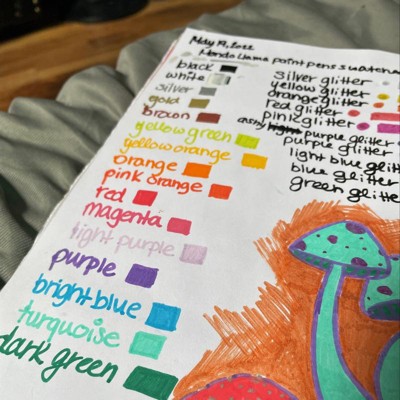 May 19, 2022
Mondo Llama paint pens swatches
black
white
silver
gold
brown
yellow green
yellow orange
orange
pink orange
red
magenta
light purple
purple
bright blue
turquoise
dark green
silver glitter
yellow glitter
orange glitter
red glitter
pink glitter
purple glitter
purple glitter
light blue glitt
blue glitter
green glitte